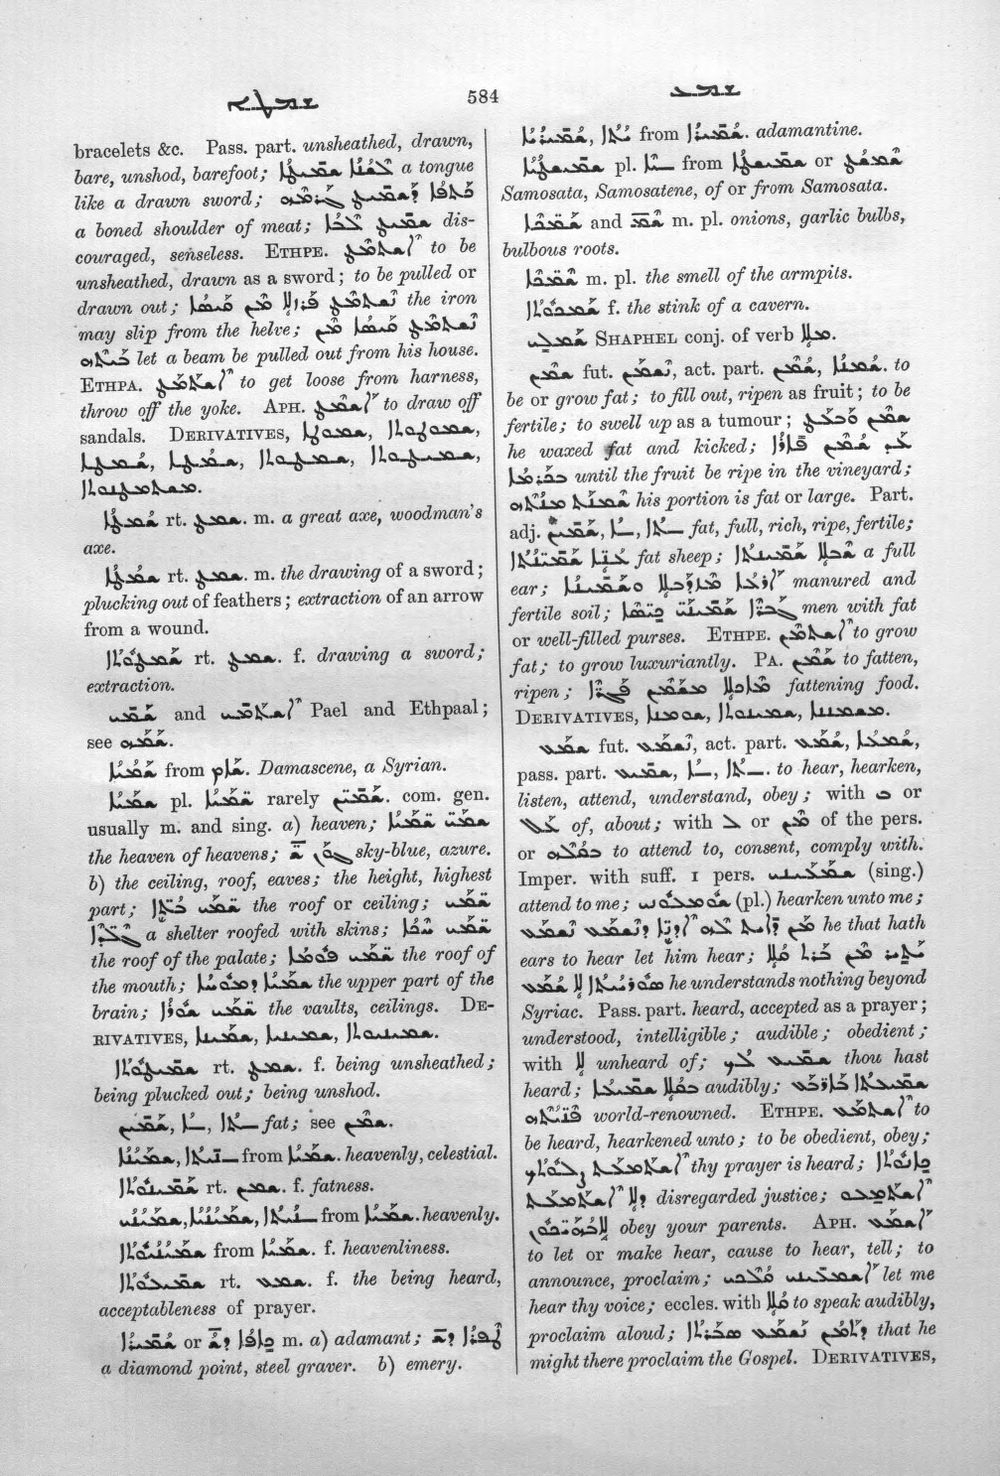 584
bracelets &c. Pass. part. unsheathed, drawn,
bare, unshod, barefoot; ܠܫܢܐ ܫܡܝܛܐ a tongue
like a drawn sword; ܟܬܦܐ
a boned shoulder of meat; ܫܡܝܛ ܠܒܐ dis-
couraged, senseless. ETHPE. ܐܫܬܡܛ to be
unsheathed, drawn as a sword; to be pulled or
drawn out; ܢܫܬܡܛ ܦܪܙܠܐ ܡܢ ܩܝܣܐ the iron
may slip from the helve; ܢܫܬܡܛ ܩܝܣܐ ܡܢ
ܒܝܬܗ let a beam be pulled out from his house.
ETHPA. ܐܫܬܡܛ to get loose from harness,
throw off the yoke. APH. ܐܫܡܛ to draw off
sandals. DERIVATIVES, ܫܡܘܛܐ, ܫܡܘܛܘܬܐ,
ܫܡܛܐ, ܫܡܛܐ, ܫܡܛܘܬܐ, ܫܡܝܛܘܬܐ,
ܡܫܬܡܛܢܘܬܐ.
ܫܡܛܐ rt. ܫܡܛ. m. a great axe, woodman's
axe.
ܫܡܛܐ rt. ܫܡܛ. m. the drawing of a sword;
plucking out of feathers; extraction of an arrow
from a wound.
ܫܡܛܘܬܐ rt. ܫܡܛ. f. drawing a sword;
extraction.
ܫܡܝ and ܐܫܬܡܝ Pael and Ethpaal;
see ܫܡܗ.
ܫܡܝܐ from ܫܐܡ. Damascene, a Syrian.
ܫܡܝܐ pl. ܫܡܝܐ rarely ܫܡܝܢ. com. gen.
usually m. and sing. a) heaven; ܫܡܝ ܫܡܝܐ
the heaven of heavens; sky-blue, azure.
b) the ceiling, roof, eaves; the height, highest
part; ܫܡܝ ܒܝܬܐ the roof or ceiling; ܫܡܝ
a shelter roofed with skins; ܫܡܝ ܚܟܐ
the roof of the palate; ܫܡܝ ܦܘܡܐ the roof of
the mouth; ܫܡܝܐ ܕܡܘܚܐ the upper part of the
brain; ܫܡܝ the vaults, ceilings. DE-
RIVATIVES, ܫܡܝܢܐ, ܫܡܝܢܝܐ, ܫܡܝܢܘܬܐ.
ܫܡܝܛܘܬܐ rt. ܫܡܛ. f. being unsheathed;
being plucked out; being unshod.
ܫܡܝܢ, ܢܐ, ܢܬܐ fat; see ܫܡܢ.
ܫܡܝܢܐ, ܢܝܬܐ from ܫܡܝܐ. heavenly, celestial.
ܫܡܝܢܘܬܐ rt. ܫܡܢ. f. fatness.
ܫܡܝܢܝ, ܫܡܝܢܝܐ, ܢܝܬܐ from ܫܡܝܐ. heavenly.
ܫܡܝܢܝܘܬܐ from ܫܡܝܐ. f. heavenliness.
ܫܡܝܥܘܬܐ rt. ܫܡܥ. f. the being heard,
acceptableness of prayer.
ܫܡܝܪܐ or ܟܐܦܐ ܕܫ m. a) adamant; ܛܦܪܐ ܕܫ
a diamond point, steel graver. b) emery.
ܫܡܝܪܝܐ, ܝܬܐ from ܫܡܝܪܐ. adamantine.
ܫܡܝܫܛܝܐ pl. from ܫܡܝܫܛ or
Samosata, Samosatene, of or from Samosata.
ܫܡܟܐ and m. pl. onions, garlic bulbs,
bulbous roots.
ܫܡܟܐ m. pl. the smell of the armpits.
ܫܡܟܘܬܐ f. the stink of a cavern.
ܫܡܠܝ SHAPHEL conj. of verb ܡܠܐ.
ܫܡܢ fut. ܢܫܡܢ, act. part. ܫܡܢ, ܫܡܢܐ. to
be or grow fat; to fill out, ripen as fruit; to be
fertile; to swell up as a tumour; ܫܡܢ ܘܒܥܛ
he waxed fat and kicked; ܥܕ ܫܡܢ ܦܐܪܐ
ܒܟܪܡܐ until the fruit be ripe in the vineyard;
ܫܡܢܬ ܡܢܬܗ his portion is fat or large. Part.
adj. ܫܡܝܢ, ܢܐ, ܢܬܐ fat, full, rich, ripe, fertile;
ܥܢܐ ܫܡܝܢܬܐ fat sheep; ܫܒܠܐ ܫܡܝܢܬܐ a full
ear; ܐܪܥܐ ܡܙܒܠܐ ܘܫܡܝܢܐ manured and
fertile soil; ܓܒܪܐ ܫܡܝܢܝ ܟܝܣܐ men with fat
or well-filled purses. ETHPE. ܐܫܬܡܢ to grow
fat; to grow luxuriantly. PA. ܫܡܢ to fatten,
ripen; ܡܐܟܠܐ ܡܫܡܢ ܦܓܪܐ fattening food.
DERIVATIVES, ܫܘܡܢܐ, ܫܡܝܢܘܬܐ, ܡܫܡܢܢܐ.
ܫܡܥ fut. ܢܫܡܥ, act. part. ܫܡܥ, ܫܡܥܐ,
pass. part. ܫܡܝܥ, ܥܐ, ܥܬܐ. to hear, hearken,
listen, attend, understand, obey; with ܒ or
ܥܠ of, about; with ܠ or ܡܢ of the pers.
or ܒܩܠܗ to attend to, consent, comply with.
Imper. with suff. 1 pers. ܫܡܥܝܢܝ (sing.)
attend to me; ܫܘܡܥܘܢܝ (pl.) hearken unto me;
ܡܢ ܕܐܝܬ ܠܗ ܐܕܢܐ ܕܢܫܡܥ ܢܫܡܥ he that hath
ears to hear let him hear; ܝܬܝܪ ܡܢ ܒܪܬ ܩܠܐ
ܣܘܪܝܝܬܐ ܠܐ ܫܡܥ he understands nothing beyond
Syriac. Pass. part. heard, accepted as a prayer;
understood, intelligible; audible; obedient;
with ܠܐ unheard of; ܫܡܝܥ ܠܟ thou hast
heard; ܒܩܠܐ ܫܡܝܥܐ audibly; ܫܡܝܥܬܐ
world-renowned. ETHPE. ܐܫܬܡܥ to
be heard, hearkened unto; to be obedient, obey;
ܐܫܬܡܥܬ ܨܠܘܬܟ thy prayer is heard; ܟܐܢܘܬܐ
ܕܠܐ ܐܫܬܡܥܬ disregarded justice; ܐܫܬܡܥܘ
ܠܐܒܗܝܟܘܢ obey your parents. APH. ܐܫܡܥ
to let or make hear, cause to hear, tell; to
announce, proclaim; ܐܫܡܥܝܢܝ ܩܠܟܝ let me
hear thy voice; eccles. with ܩܠܐ to speak audibly,
proclaim aloud; ܕܬܡܢ ܢܫܡܥ ܣܒܪܬܐ that he
might there proclaim the Gospel. DERIVATIVES,